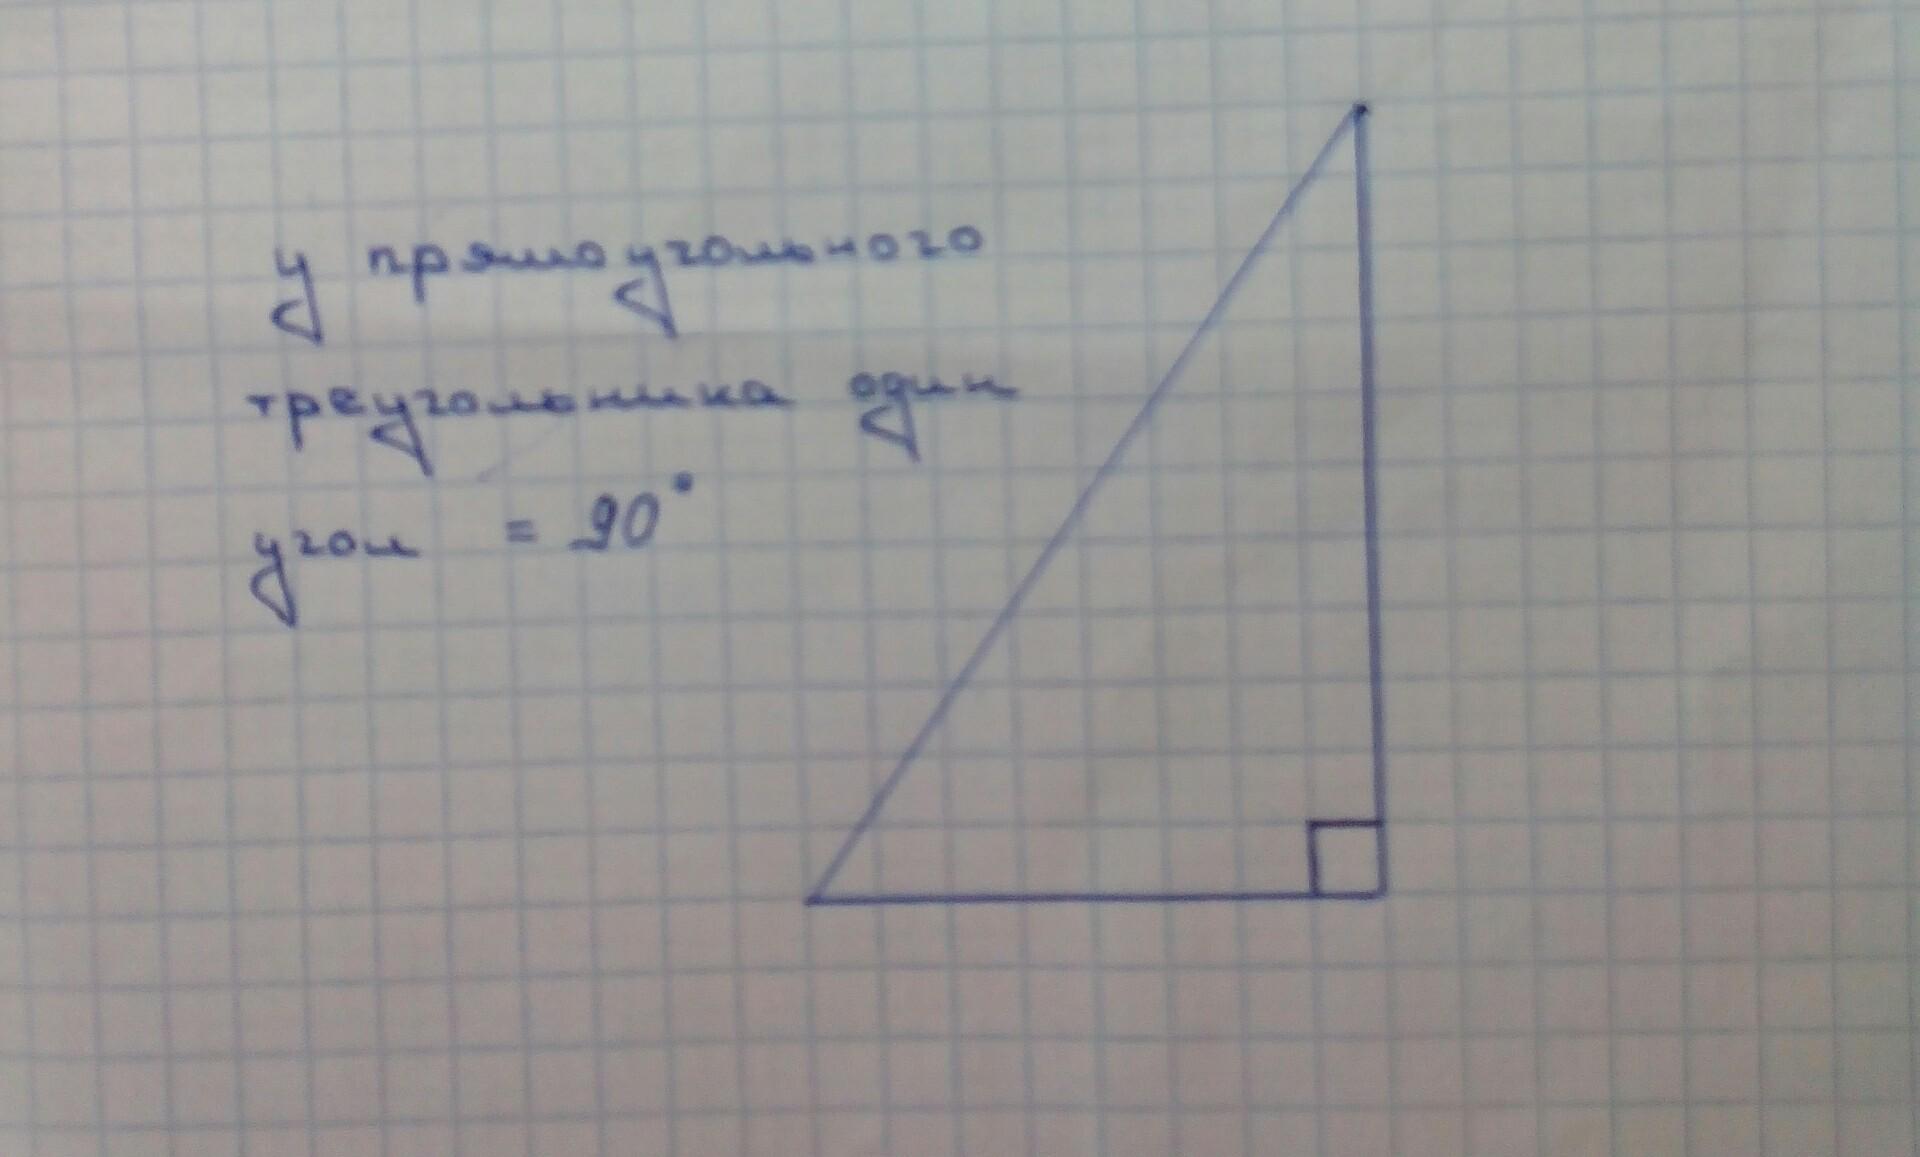 у прямоугольного
треугольника один
угол = 90°